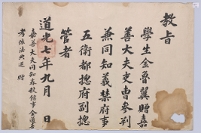 教旨
學生金魯翼贈嘉
善大夫吏曹參判
兼同知義禁府事
五衛都摠府副摠
管者
道光七年九月 日